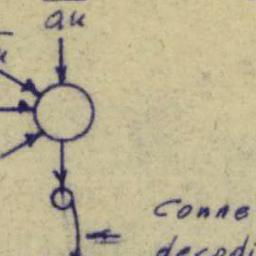 au
Conne
decodi